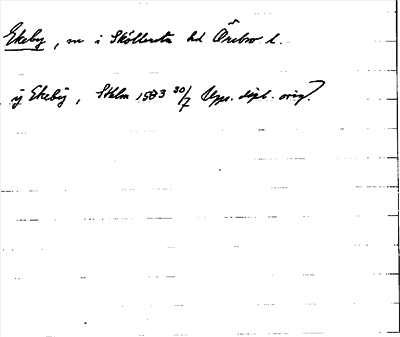 Ekeby, sn i Sköllersta hd Örebro l.
ij Ekebÿ, Sthlm 1583 30/7 Upps. dipl. orig.